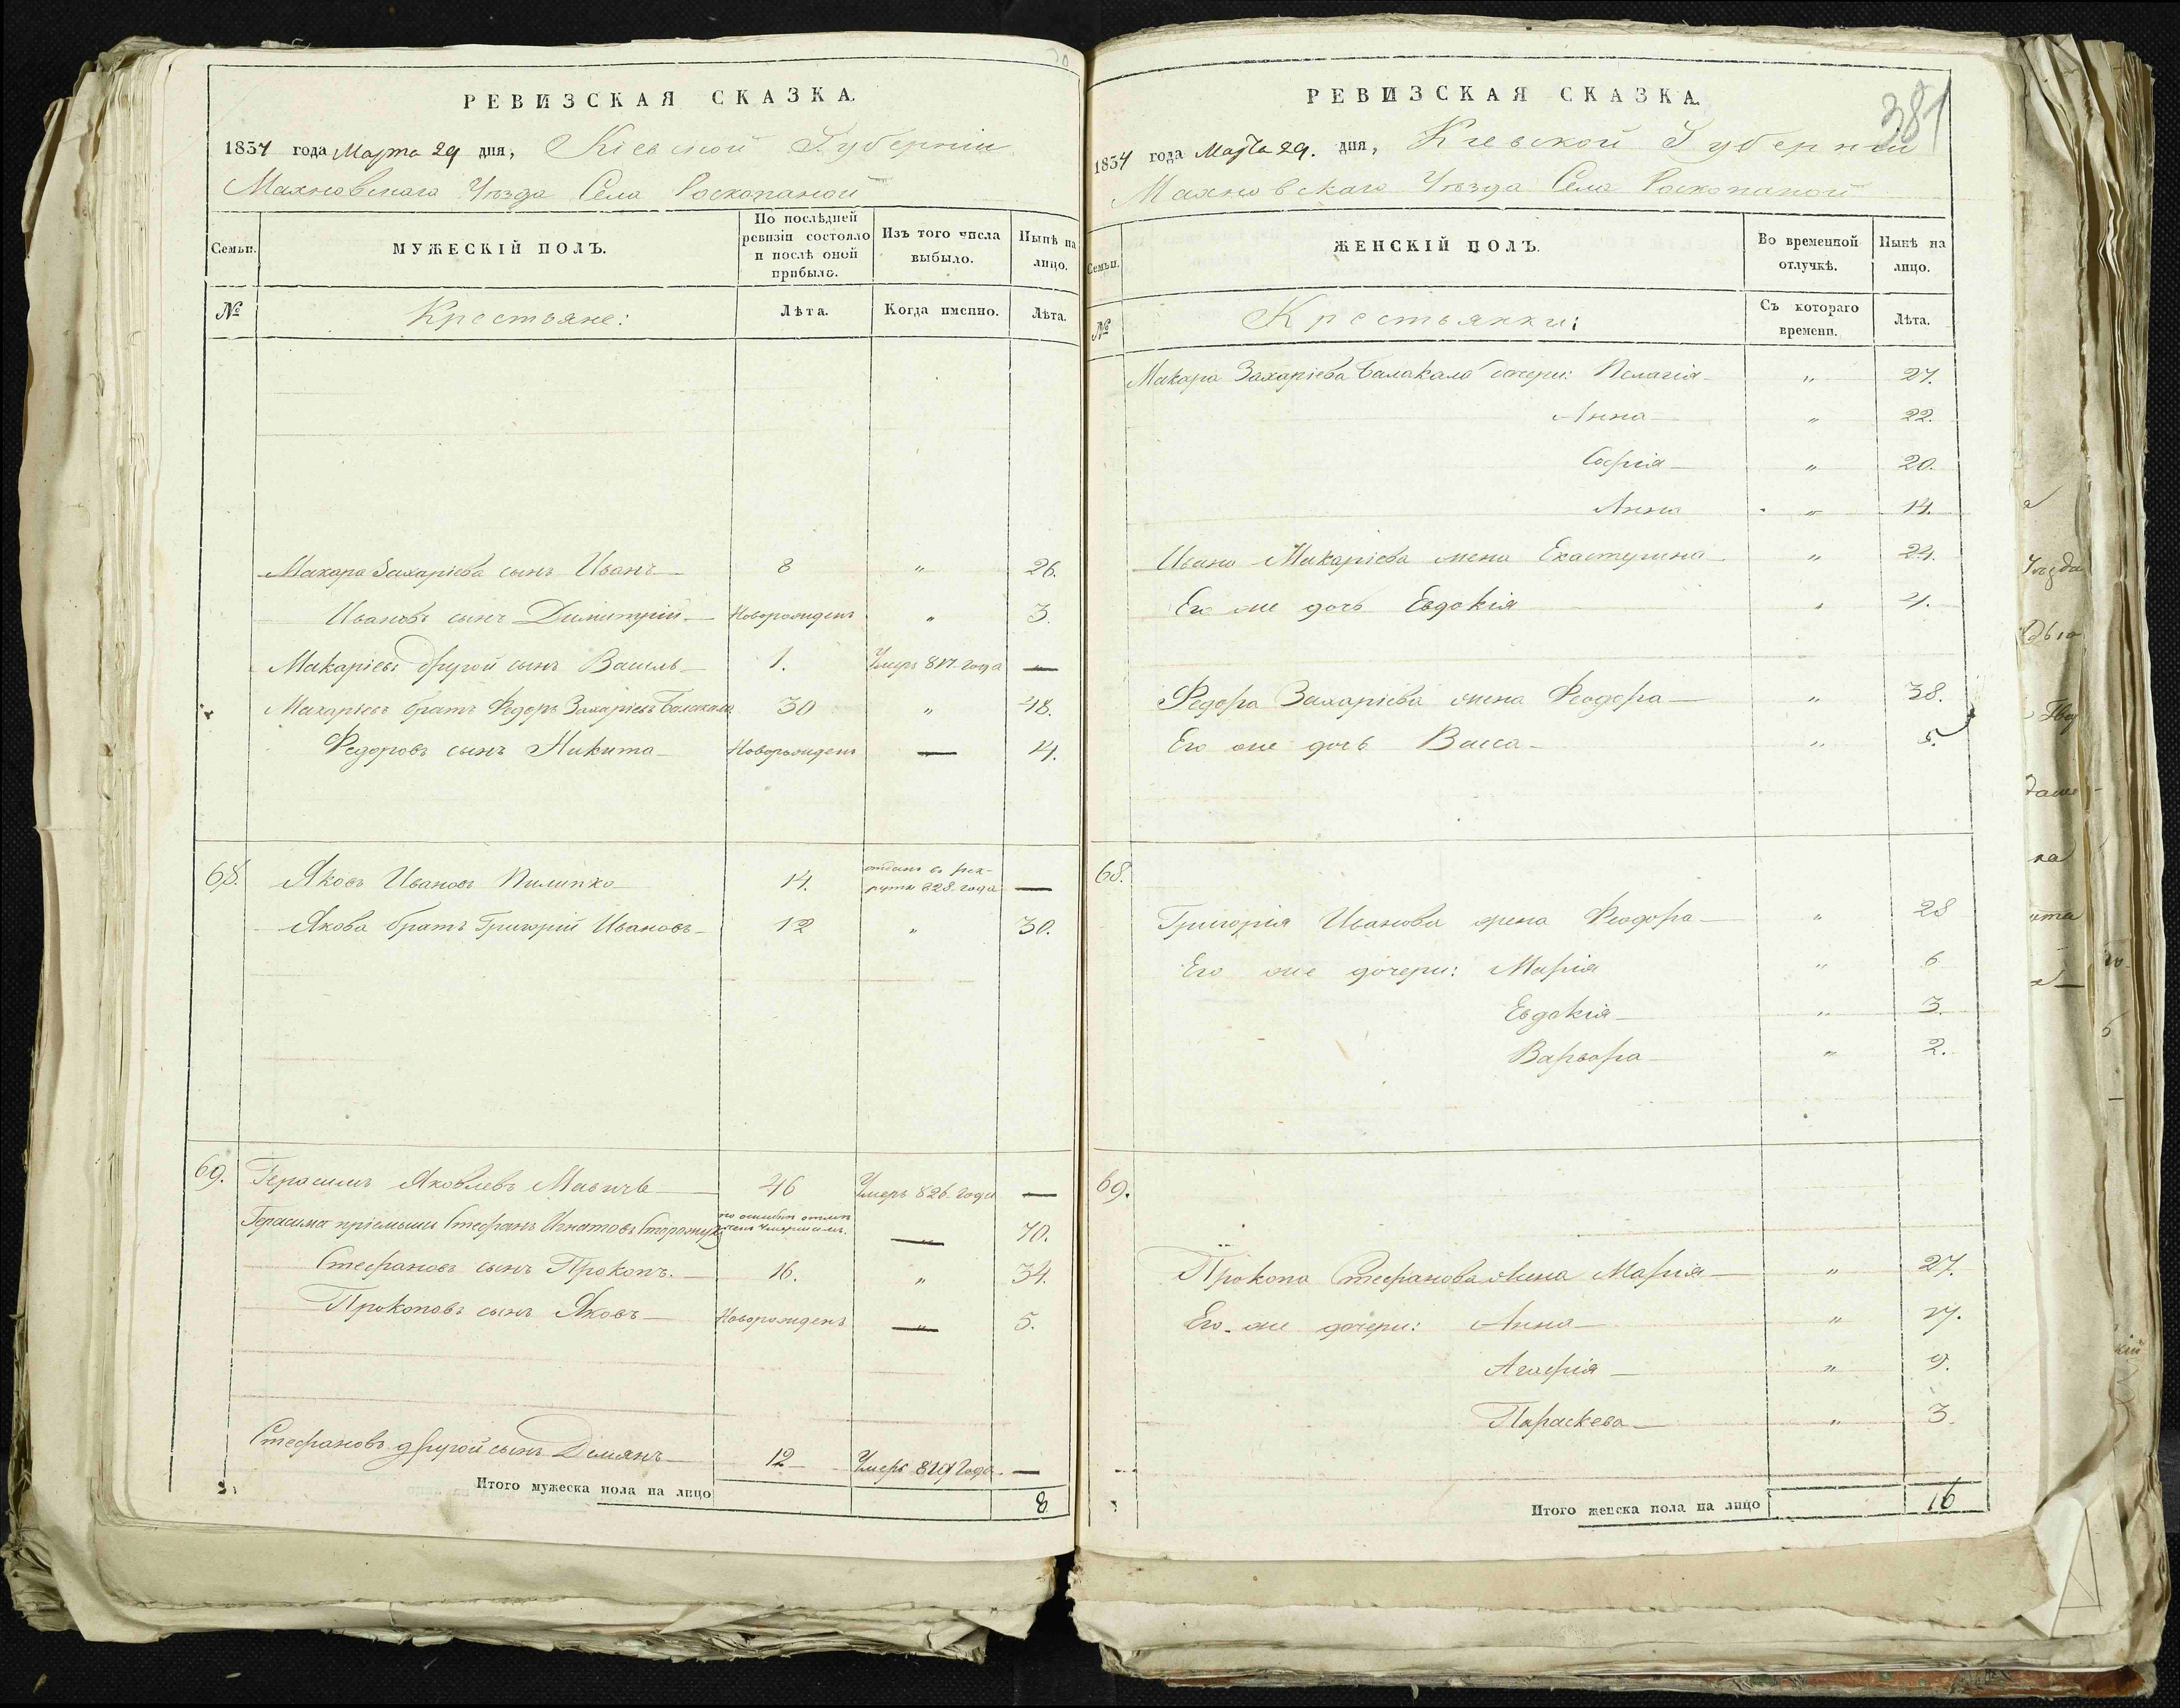 РЕВИЗСКАЯ СКАЗКА.
1834 года Марта 29 дня, Кіевской Губерніи
Махновскаго Уѣзда Села Роскопаной
Семьи.
МУЖЕСКІЙ ПОЛЪ.
По послѣдней ревизіи состояло и послѣ оной прибыло.
Изъ того числа выбыло.
Нынѣ на лицо.
№
Крестьяне:
Лѣта.
Когда именно.
Лѣта.
Макара Захаріева сынъ Иванъ 8 " 26.
Ивановъ сынъ Димитрій Новорожденъ " 3.
Макаріевъ другой сынъ Василь 1. Умеръ 817. года —
Макаріевъ братъ Федоръ Захаріевъ Балакала 30 " 48.
Федоровъ сынъ Никита Новорожденъ — 14.
68. Яковъ Ивановъ Пилипко 14. отданъ въ рекруты 828. года —
Якова братъ Григорій Ивановъ 12 " 30.
69. Герасимъ Яковлевъ 46 Умеръ 826. года —
Герасима пріемышъ Стефанъ Игнатовъ Сторожукъ по ошибкѣ умершимъ. — 70.
Стефановъ сынъ Прокопъ. 16. " 34.
Прокоповъ сынъ Яковъ Новорожденъ — 5.
Стефановъ другой сынъ Демянъ 12 Умеръ 819 года. —
Итого мужеска пола на лицо 8
381
РЕВИЗСКАЯ СКАЗКА.
1834 года Марта 29. дня, Кіевской Губерніи
Махновскаго Уѣзда Села Роскопаной
Семьи.
ЖЕНСКІЙ ПОЛЪ.
Во временной отлучкѣ.
Нынѣ на лицо.
№
Крестьянки:
Съ котораго времени.
Лѣта.
Макара Захаріева Балакала дочери: Пелагія " 27.
Анна " 22.
Софія " 20.
Анна " 14.
Ивана Макаріева жена Екатерина " 24.
Его же дочь Евдокія " 4.
Федора Захаріева жена Феодора " 38.
Его же дочь Васса " 5.
68.
Григорія Иванова жена Феодора " 28
Его же дочери: Марія " 6
Евдокія " 3.
Варвара " 2.
69.
Прокопа Стефанова жена Марія " 27.
Его же дочери: Анна "
Агафія " 9.
Параскева " 3.
Итого женска пола на лицо 16